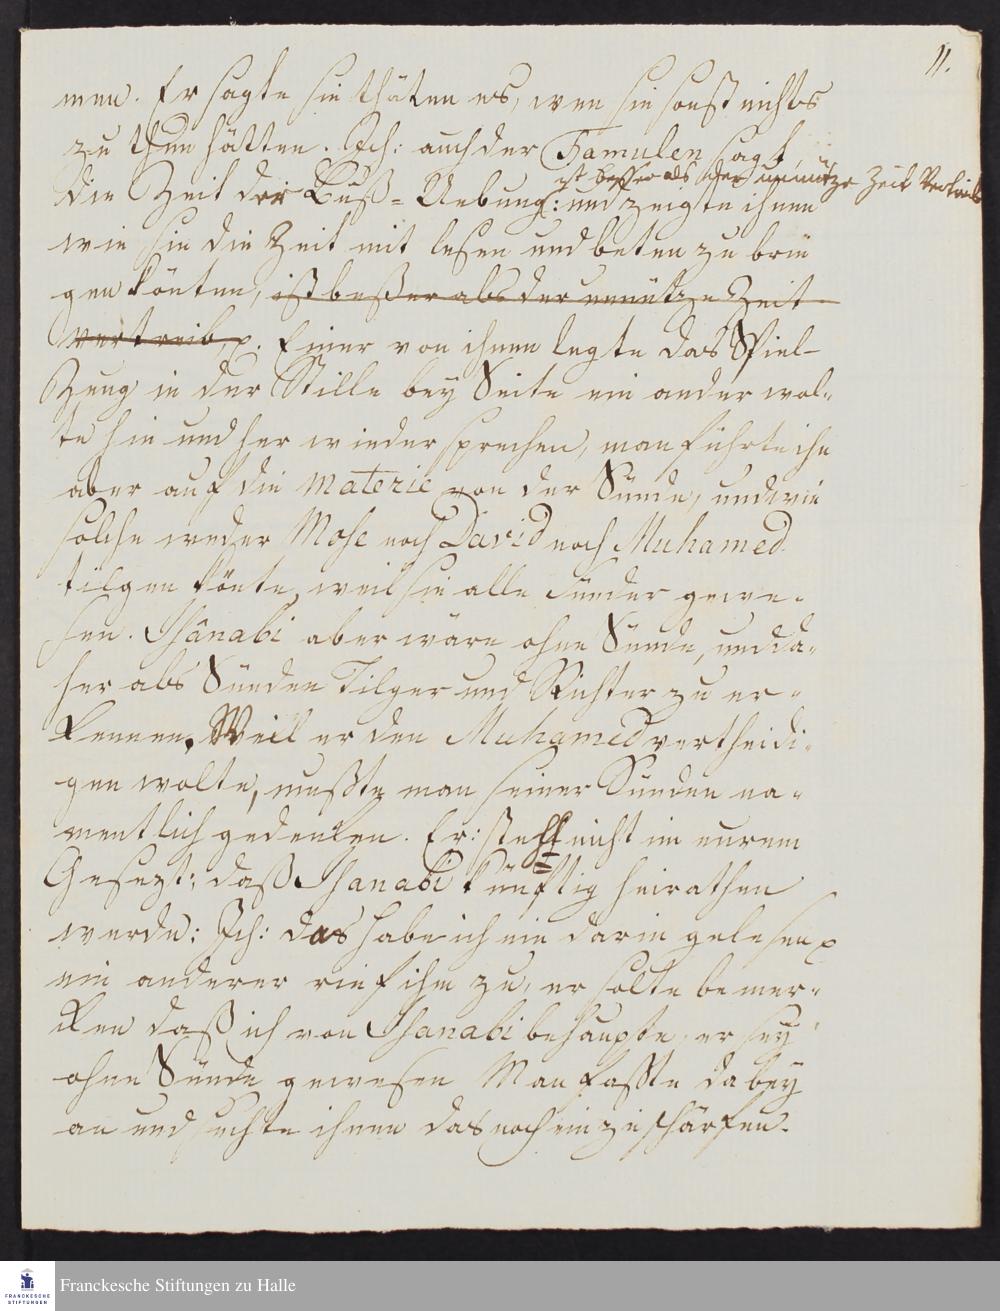 11.
men. Er sagte sie thäten es, wen sie sonst nichts
zu thun hätten. Ich: auch der Famulen sagt,
ist besser als der unnütze Zeit Vertreib
die Zeit der Buß-Uebung: und zeigte ihnen
wie sie die Zeit mit lesen und beten zu brin
gen könten, ist beßer als der unnütze Zeit
vertreib, p. Einer von ihnen legte das Spiel-
Zeug in der Stille bey Seite ein ander wol-
te hin und her wieder sprechen, man führte ihn
aber auf die Materie von der Sünde, und wie
solche weder Mose noch David noch Muhamed
tilgen könte, weil sie alle Sünder gewe-
sen. Isânabi aber wäre ohne Sünde, und da-
her als Sünden Tilger und Richter zu er-
kennen. Weil er den Muhamed vertheidi-
gen wolte, mußte man seiner Sünden na-
mentlich gedenken. Er: steht nicht in eurem
Gesezt: daß Isanabi künftig heirathen
werde: Ich: das habe ich nie darin gelesen p
ein anderer rief ihm zu, er solte bemer-
ken daß ich von Isanabi behaupte, er sey
ohne Sünde gewesen Man faßte dabey
an und suchte ihnen das noch einzuschärfen.
Franckesche Stiftungen zu Halle
FRANCKESCHE
STIFTUNGEN